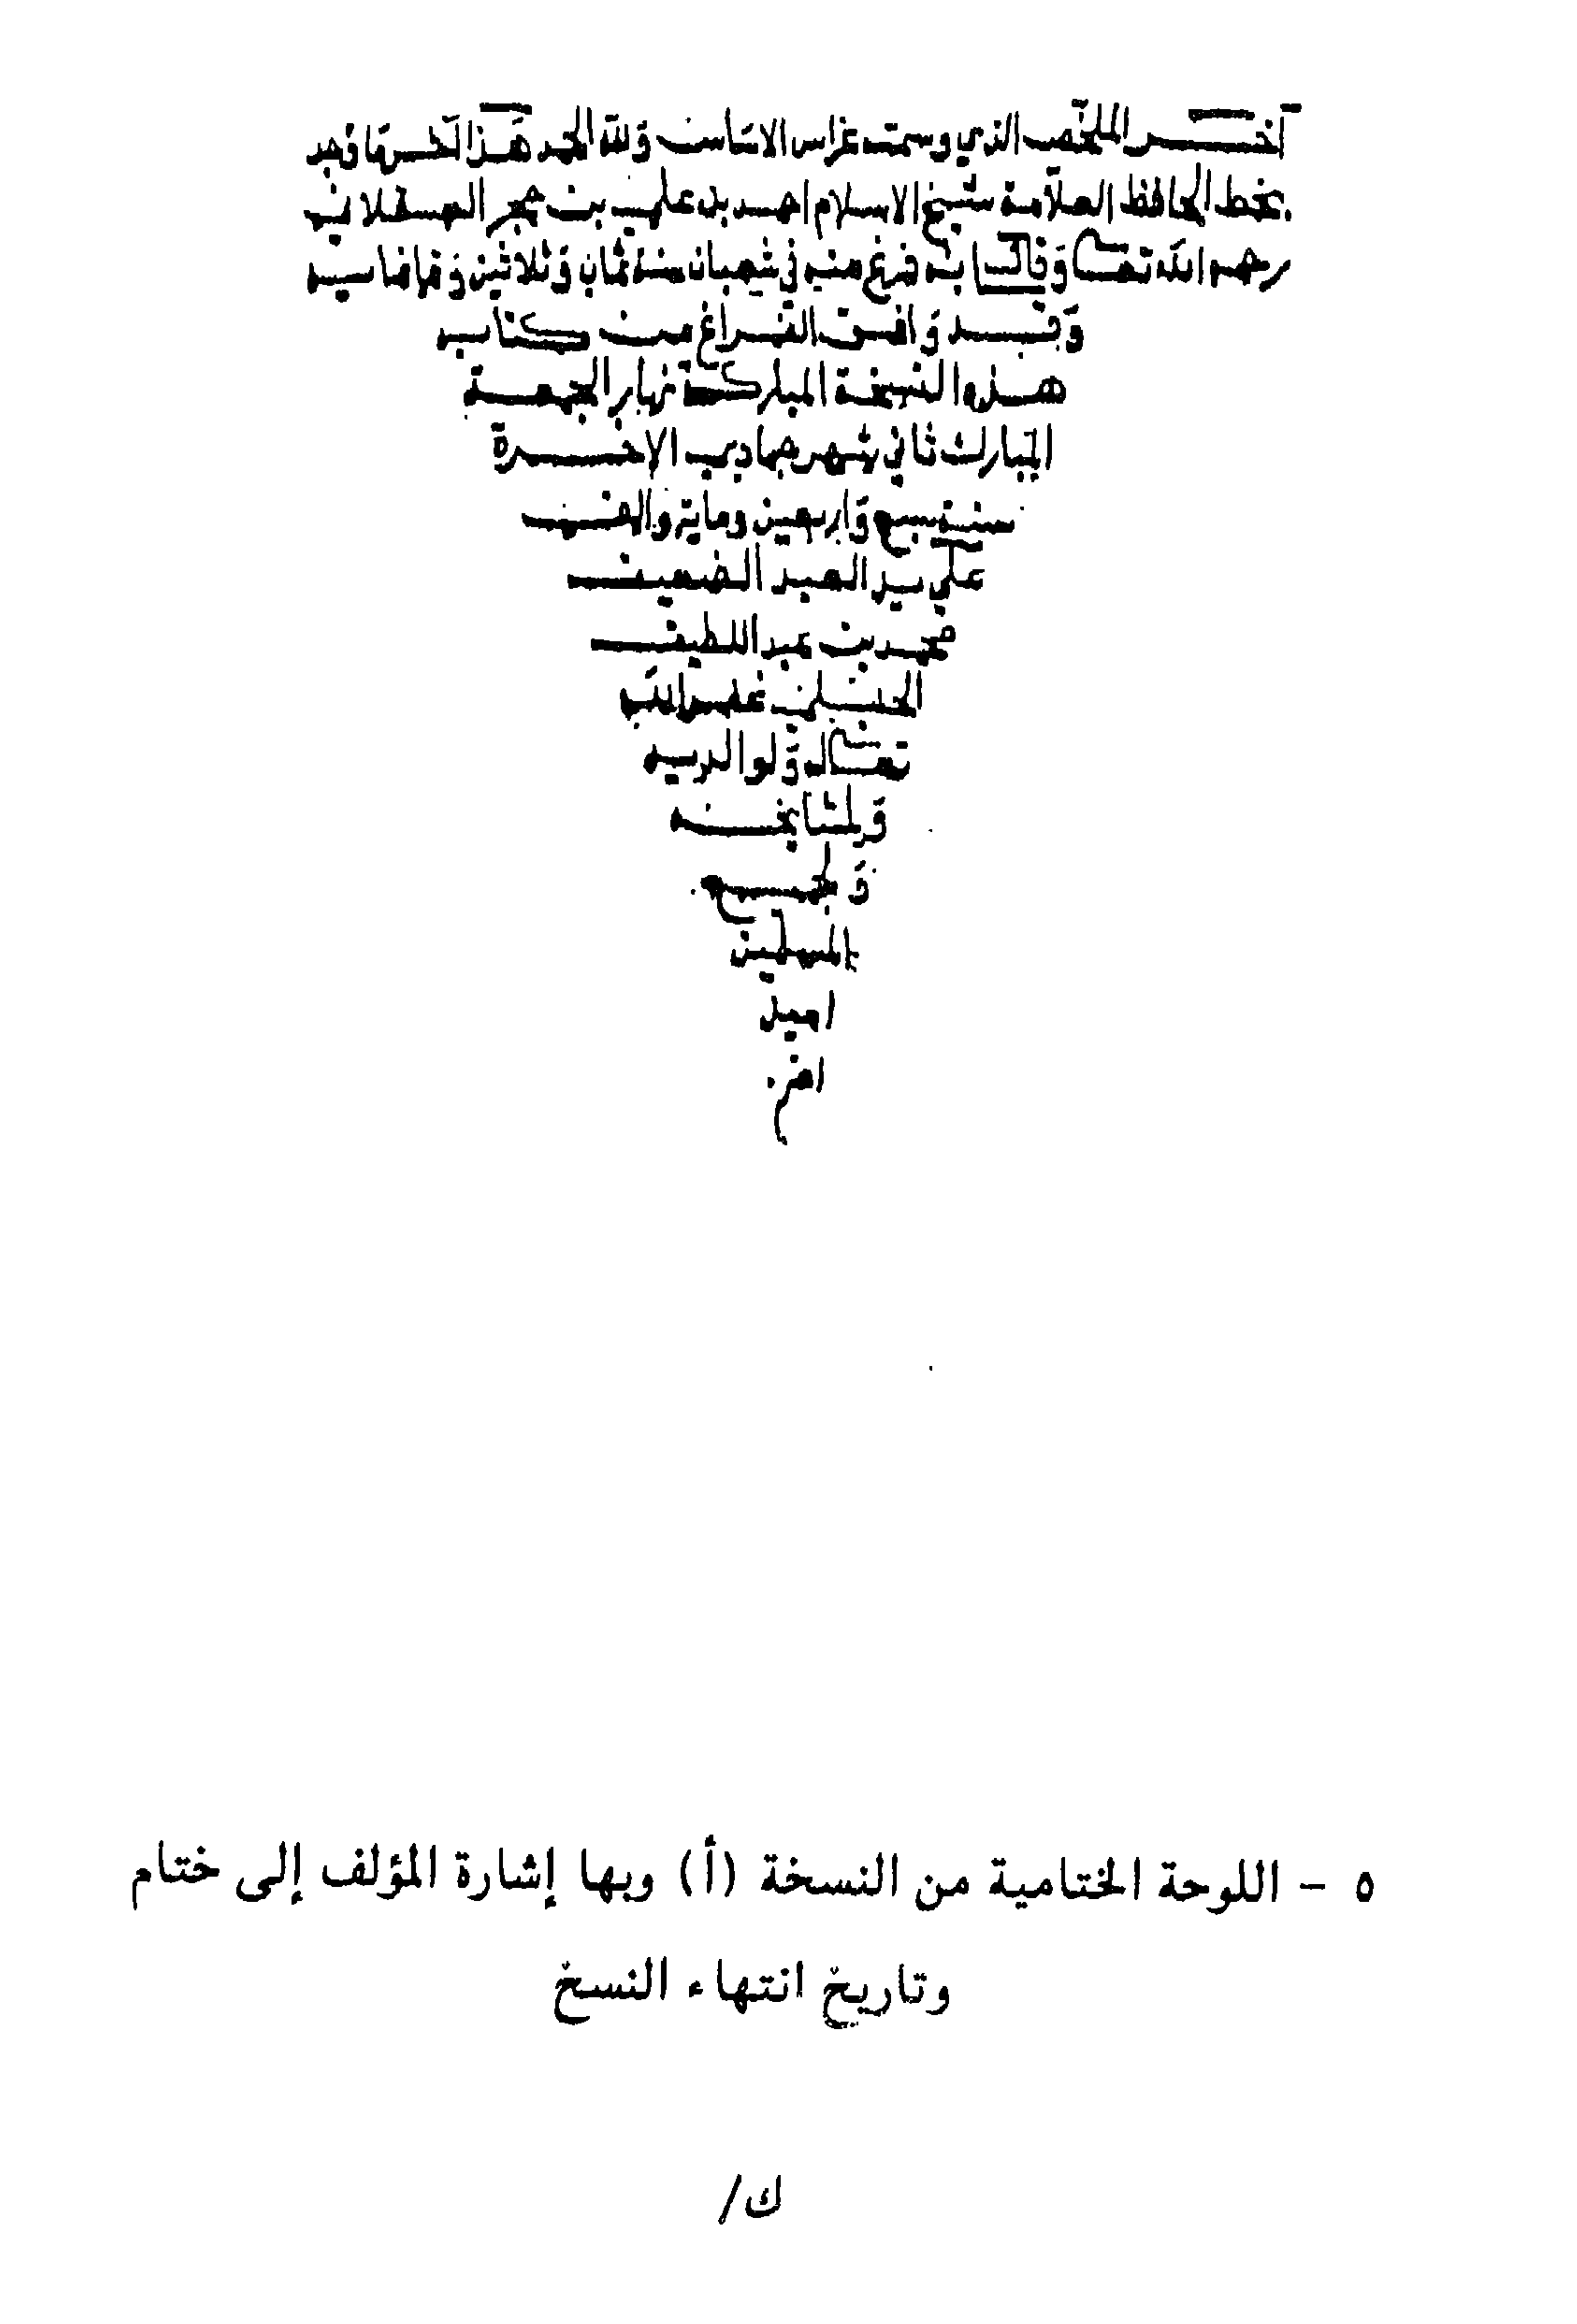 آخر الملخص الذي وسمته غراس الاساس ولله الحمد هذا آخر ما وجد
بخط الحافظ العلامة شيخ الاسلام احمد بن علي بن حجر العسقلاني
رحمه الله تعالى وقال انه فرغ منه في شعبان سنة ثمان وثلاثين وثمانمايه
وقد وافق الفراغ من كتابه
هذه النسخة المباركة نهار الجمعة
المبارك ثاني شهر جمادي الاخرة
سنة سبع واربعين ومايتر والف
علي يد العبد الضعيف
محمد بن عبد اللطيف
الحنبلي غفر الله
تعالى له ولوالديه
ولمشايخه
ولجميع
المسلمين
امين
٥ - اللوحة الختامية من النسخة (أ) وبها إشارة المؤلف إلى ختام
وتاريخ انتهاء النسخ
ك/